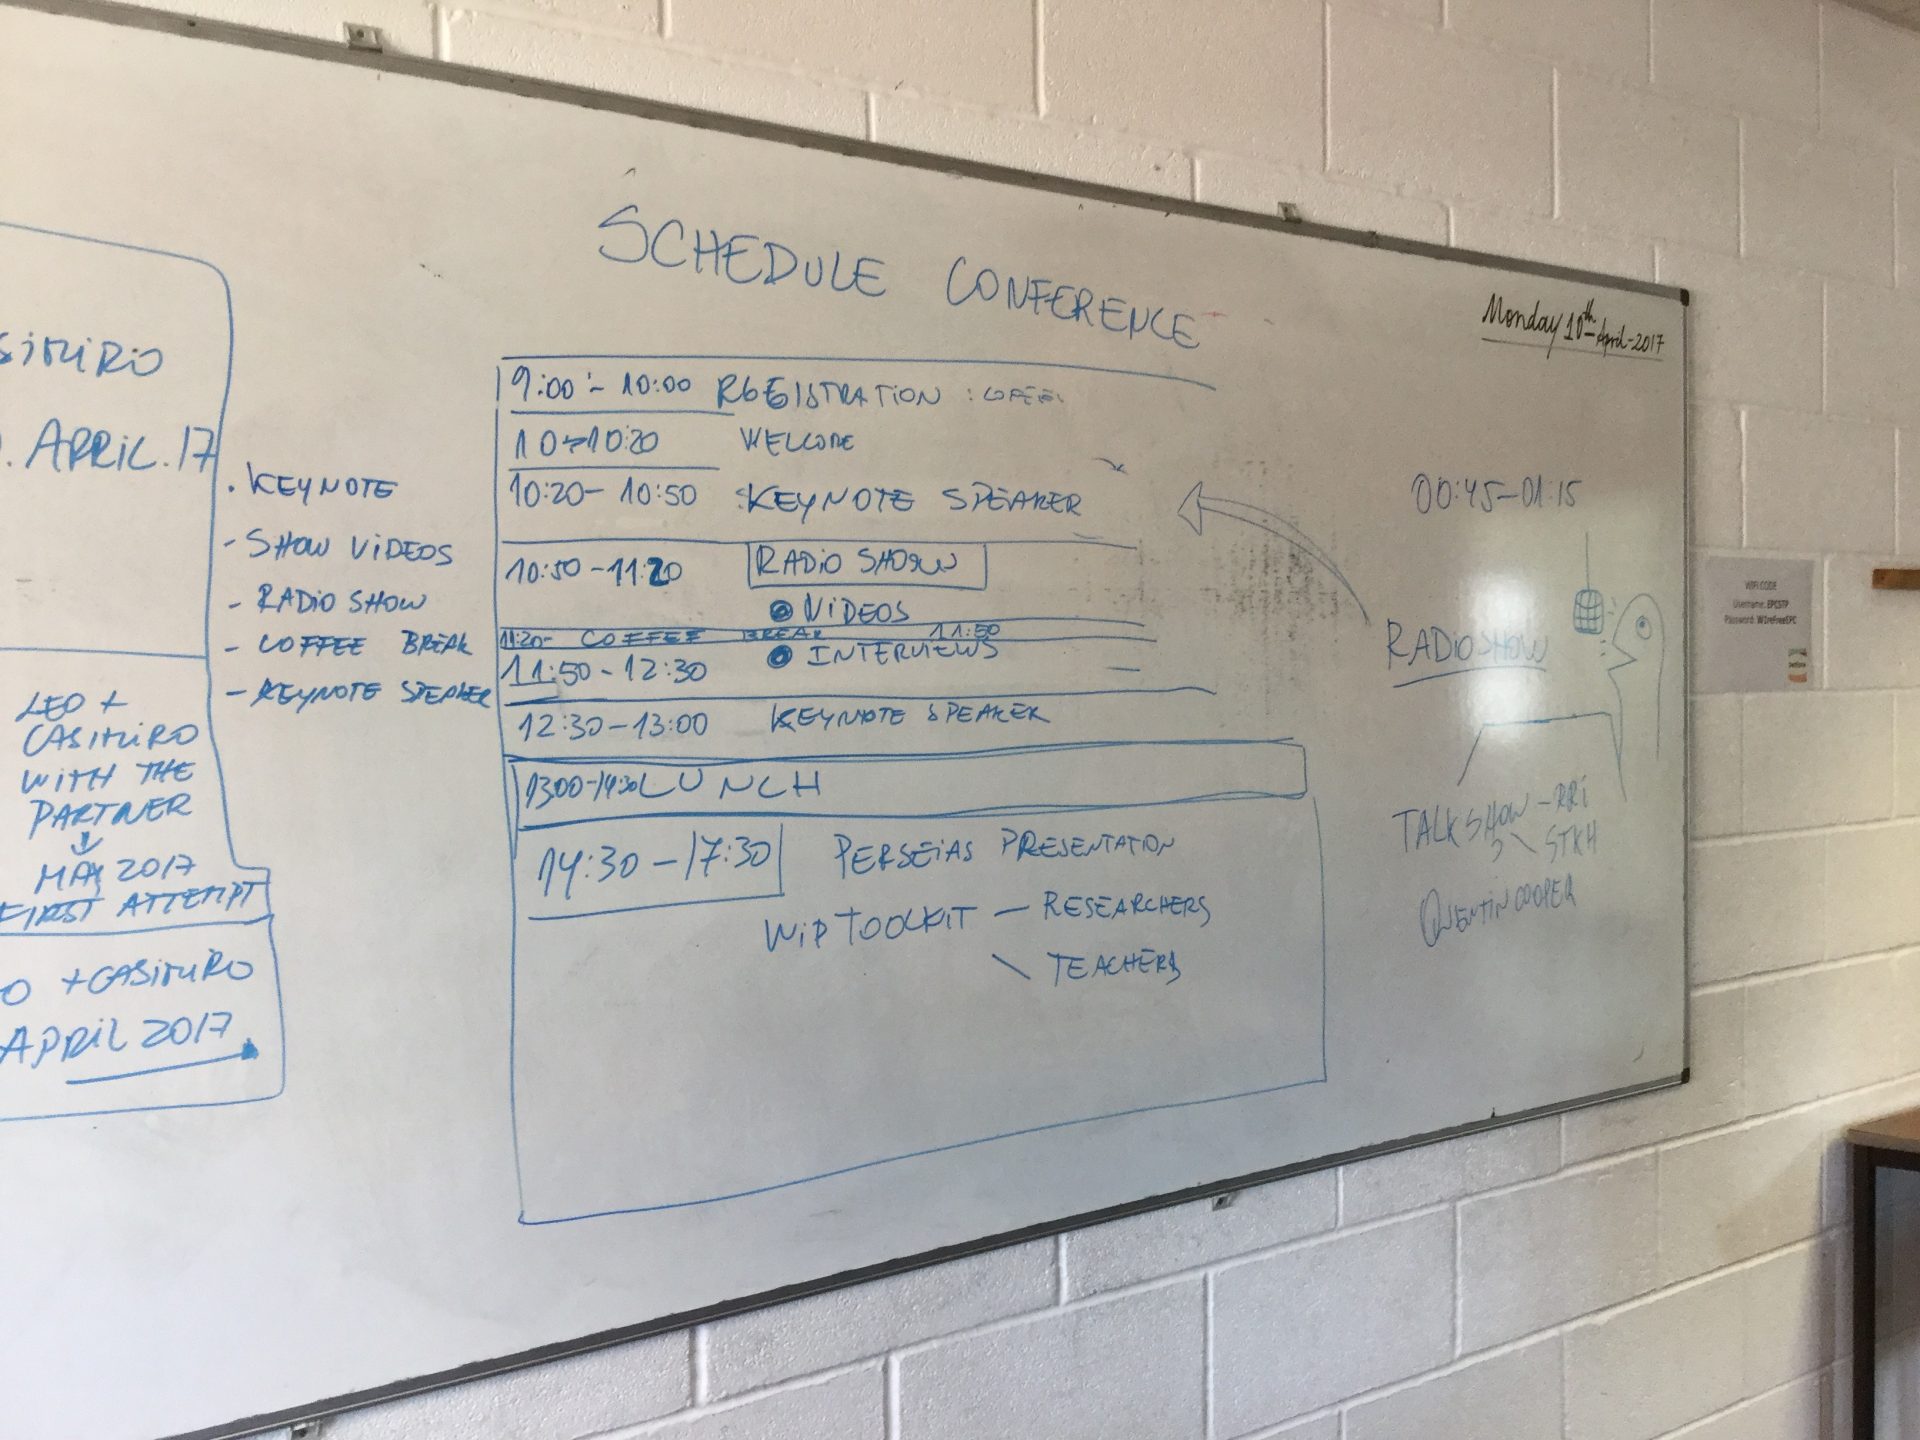 SCHEDULE CONFERENCE
Monday 10th April-2017
9:00 - 10:00 REGISTRATION :
10→10:20 WELCOME
10:20- 10:50 :KEYNOTE SPEAKER
10:50 -11:20 RADIO SHOW
VIDEOS
11:20- COFFEE BREAK 11:50
11:50 - 12:30 INTERVIEWS
12:30-13:00 KEYNOTE SPEAKER
1300-14:30 LUNCH
14:30 -17:30 PERSEIAS PRESENTATION
WIP TOOLKIT - RESEARCHERS
TEACHERS
APRIL.17
. KEYNOTE
- SHOW VIDEOS
- RADIO SHOW
- COFFEE BREAK
- KEYNOTE SPEAKER
LEO +
CASIMIRO
WITH THE
PARTNER
MAY 2017
FIRST ATTEMPT
O +CASIMIRO
APRIL 2017
00:45-01:15
RADIO SHOW
TALK SHOW - RRI
3 STKH
QUENTIN COOPER
WIFI CODE
Username: EPCSTP
Password: W1reFreeEPC